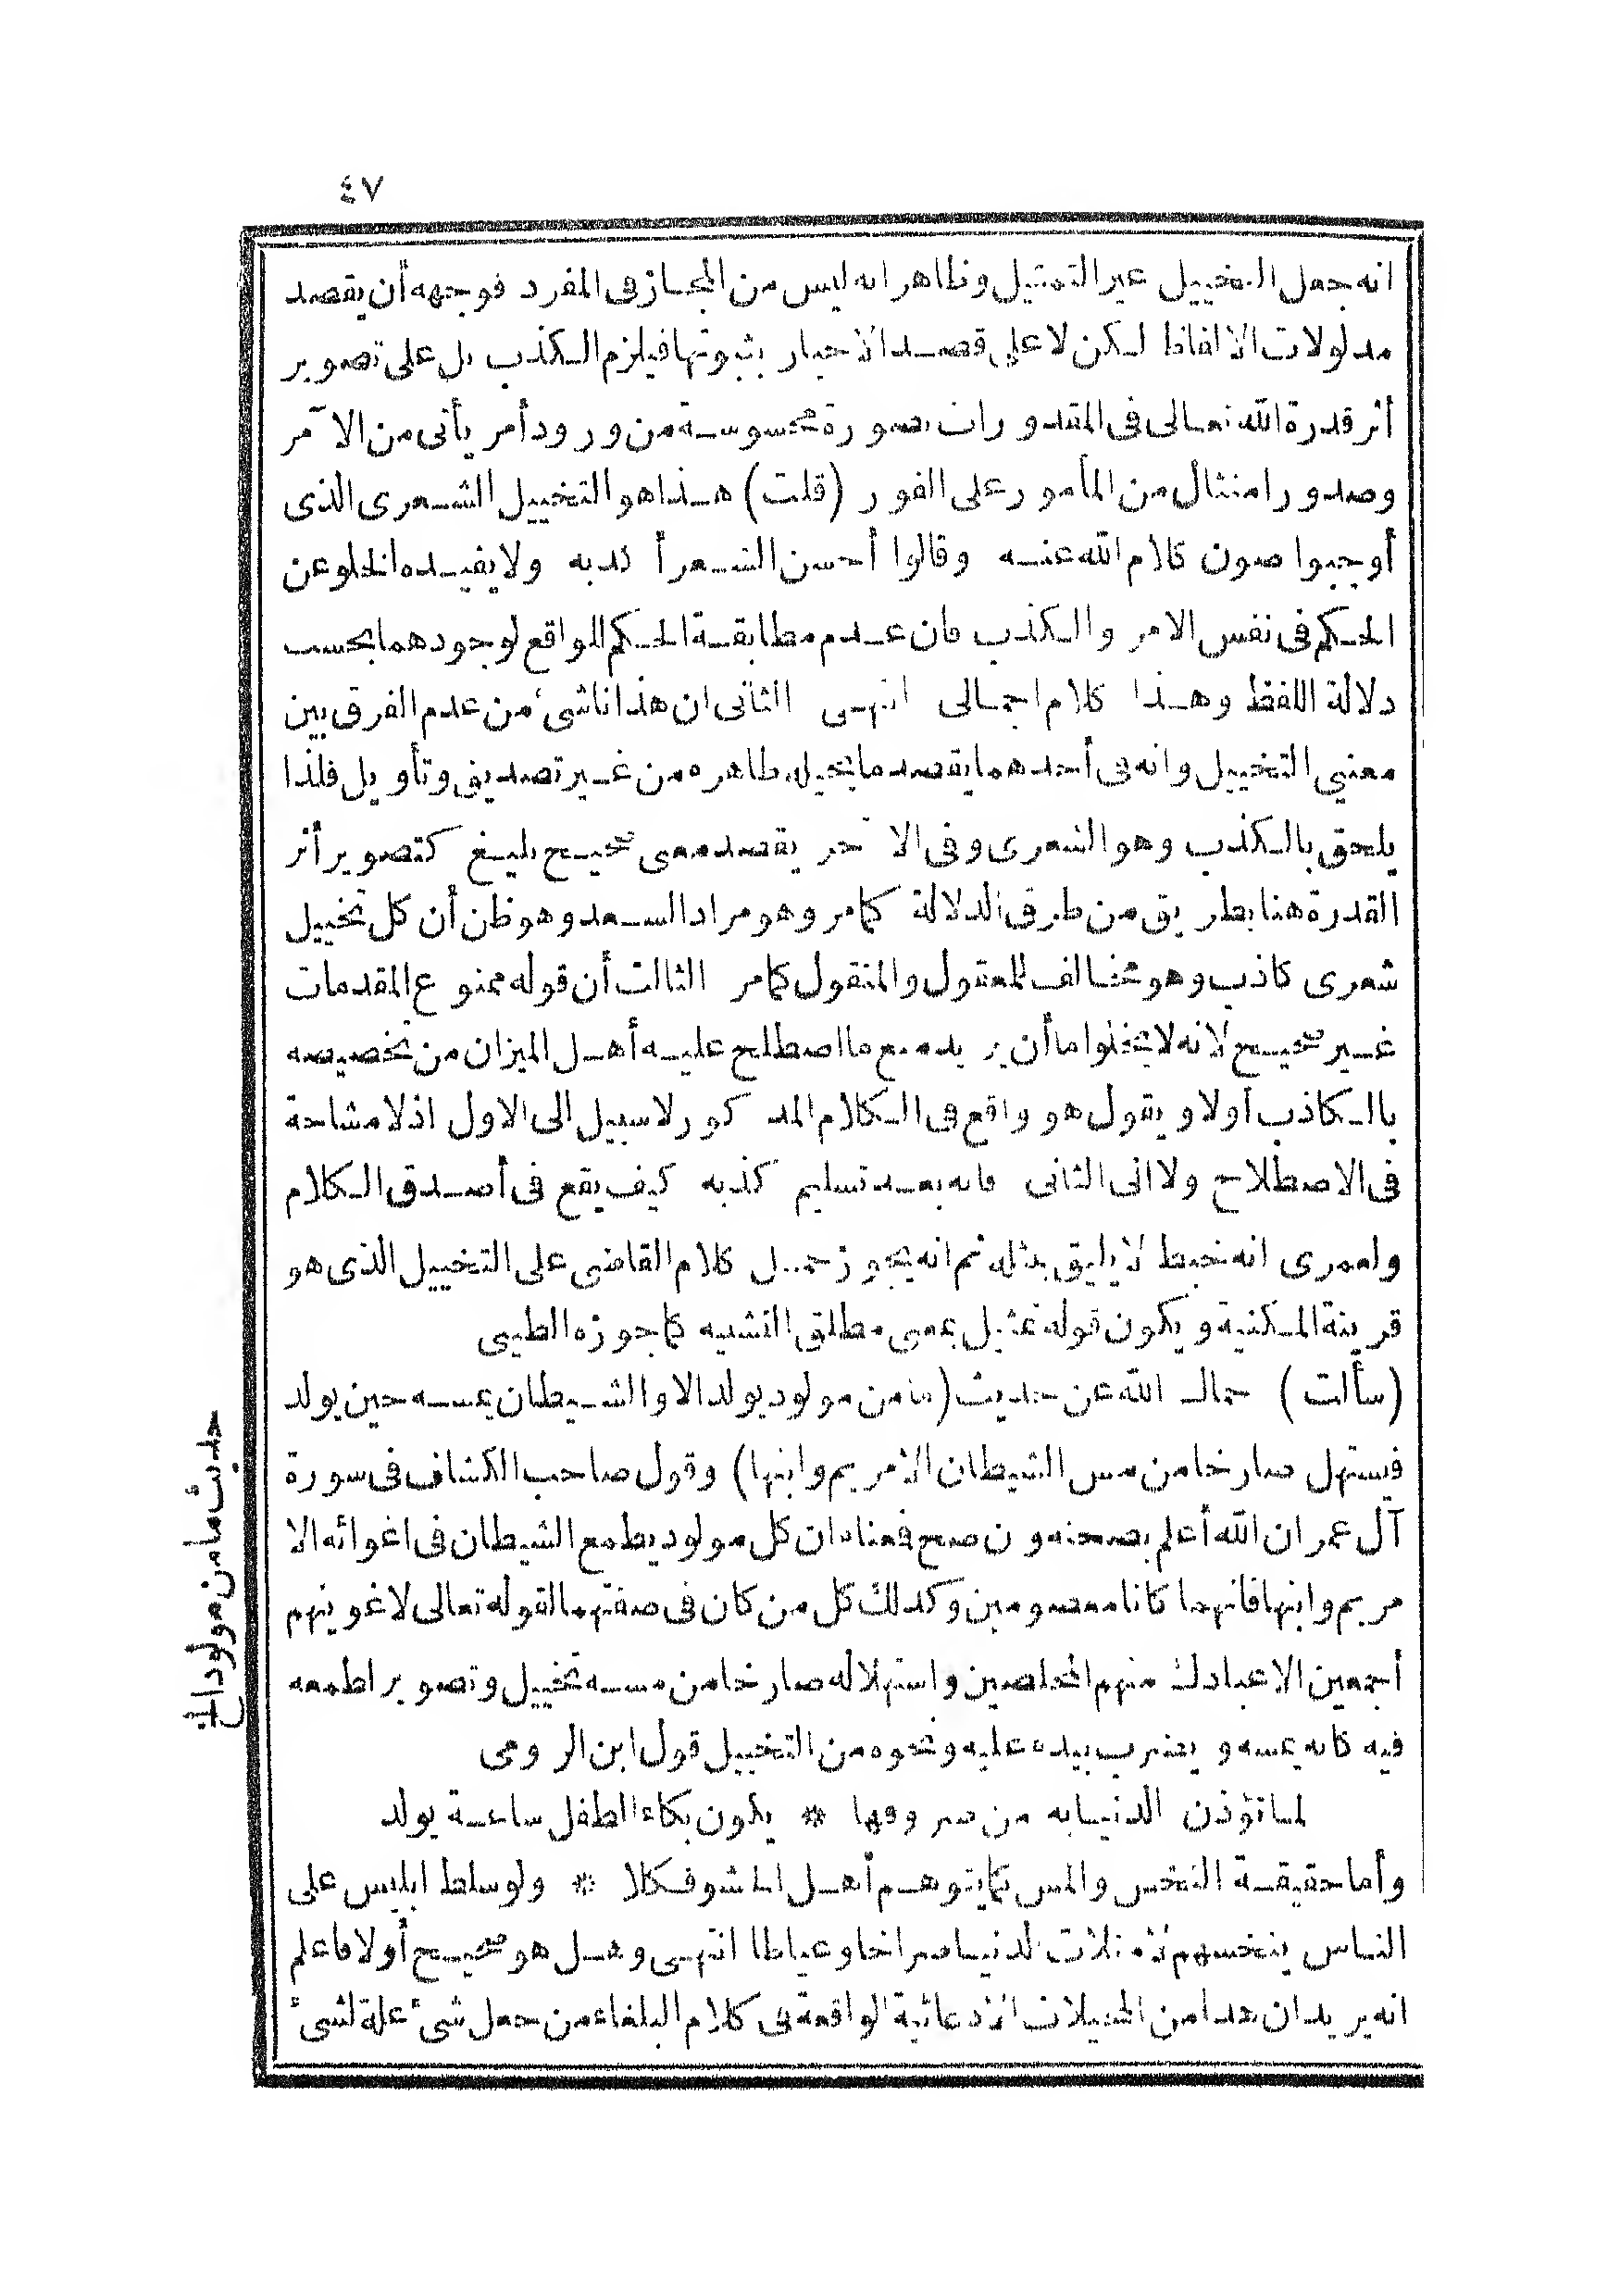 ٤٧
انه جعل التخييل غير التمثيل وظاهر انه ليس من المجاز فى المفرد فوجهه أن يقصد
مدلولات الالفاظ لكن لا على قصد الاخبار بثبوتها فيلزم الكذب بل على تصوير
أثر قدرة الله تعالى فى المقدورات بصورة محسوسة من ورود أمر يأتى من الآمر
وصدور امتثال من المأمور على الفور (قلت) هذا هو التخييل الشعرى الذى
أوجبوا صون كلام الله عنه وقالوا أحسن الشعر أكذبه ولا يفيده الخلو عن
الحكم فى نفس الامر والكذب فان عدم مطابقة الحكم للواقع لوجودهما بحسب
دلالة اللفظ وهذا كلام اجمالى انتهى الثانى ان هذا ناشئ من عدم الفرق بين
معنيي التخييل وانه فى أحدهما يقصد ما يخيله ظاهره من غير تصديق وتأويل فلذا
يلحق بالكذب وهو الشعرى وفى الآخر يقصد معنى صحيح بليغ كتصوير أثر
القدرة هنا بطريق من طرق الدلالة كما مر وهو مراد السعد وهو ظن أن كل تخييل
شعرى كاذب وهو مخالف للمعقول والمنقول كما مر الثالث أن قوله ممنوع المقدمات
غير صحيح لانه لا يخلوا ما أن يريد منع ما اصطلح عليه أهل الميزان من تخصيصه
بالكاذب أولا ويقول هو واقع فى الكلام المذكور لا سبيل الى الاول اذ لا مشاحة
فى الاصطلاح ولا الى الثانى فانه بعد تسليم كذبه كيف يقع فى أصدق الكلام
ولعمرى انه خبط لا يليق بمثله ثم انه يجوز حمل كلام القاضى على التخييل الذى هو
قرينة المكنية ويكون قوله تمثيل بمعنى مطلق التشبيه كما جوزه الطيبى
(سألت) حماك الله عن حديث (ما من مولود يولد الا والشيطان يمسه حين يولد
فيستهل صارخا من مس الشيطان الا مريم وابنها) وقول صاحب الكشاف فى سورة
آل عمران الله أعلم بصحته وان صح فمعناه ان كل مولود يطمع الشيطان فى اغوائه الا
مريم وابنها فانهما كانا معصومين وكذلك كل من كان فى صفتهما لقوله تعالى لاغوينهم
أجمعين الا عبادك منهم المخلصين واستهلاله صارخا من مسه تخييل وتصوير لطمعه
فيه كانه يمسه ويضرب بيده عليه ونحوه من التخييل قول ابن الرومى
لما تؤذن الدنيا به من صروفها * يكون بكاء الطفل ساعة يولد
وأما حقيقة النخس والمس كما يتوهم أهل الحشو فكلا * ولو سلط ابليس على
الناس ينخسهم لامتلات الدنيا صراخا وعياطا انتهى وهل هو صحيح أولا فاعلم
انه يريد ان هذا من التخييلات الادعائية الواقعة فى كلام البلغاء من جعل شئ علة لشئ
حديث ما من مولود الخ